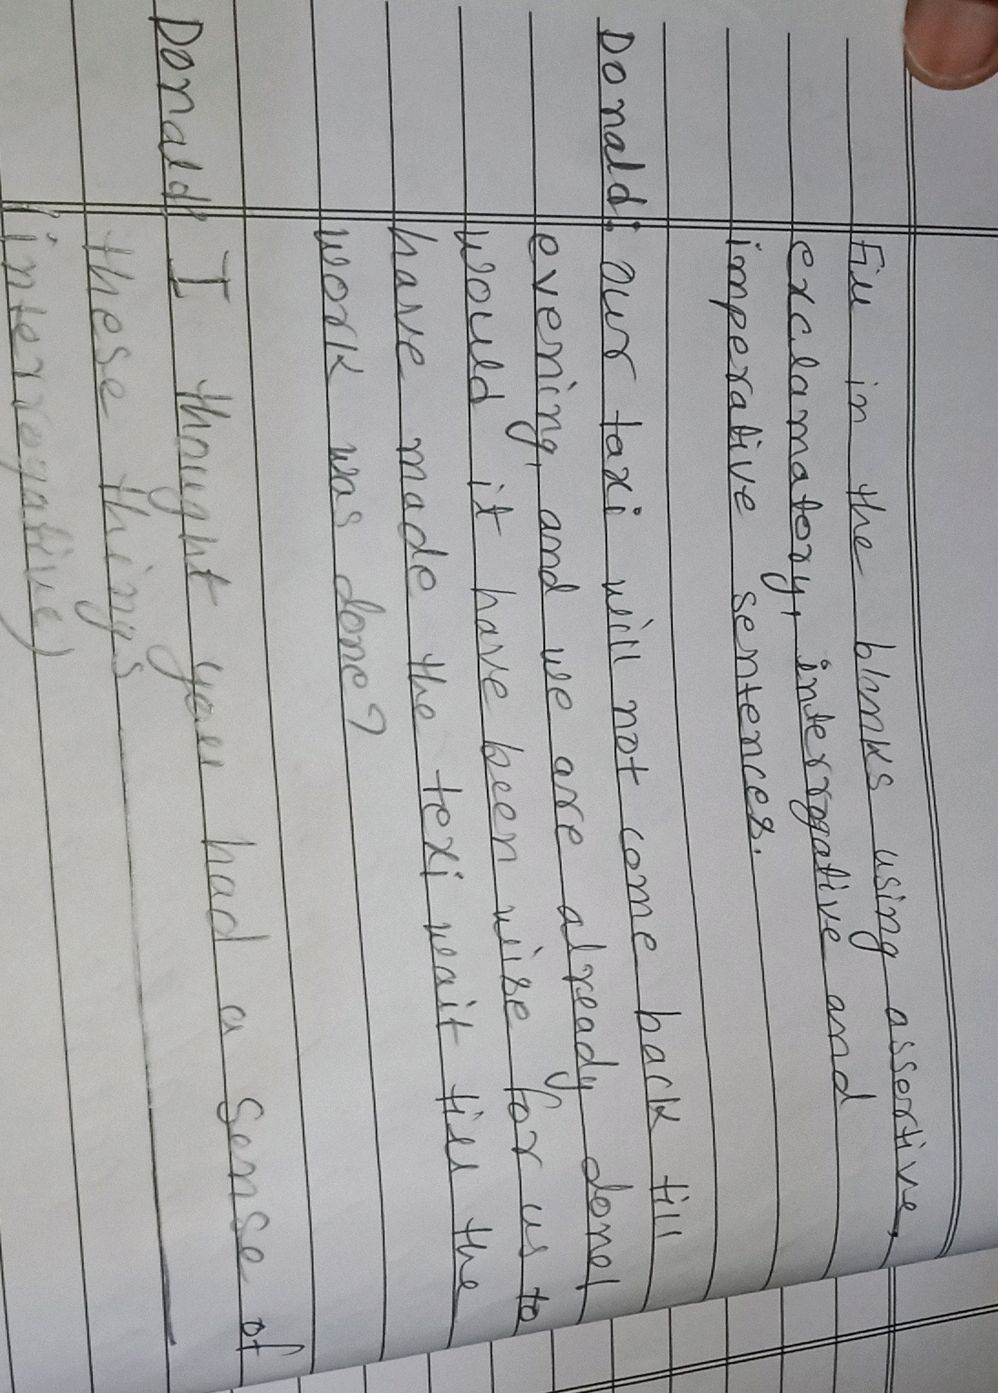 Fill in the blanks using assertive,
exclamatory, interrogative and
imperative sentences.
Donald: our taxi will not come back till
evening, and we are already done!
would it have been wise for us to
have made the texi wait till the
work was done?
Donald: I thought you had a sense of
these things
(interrogative)